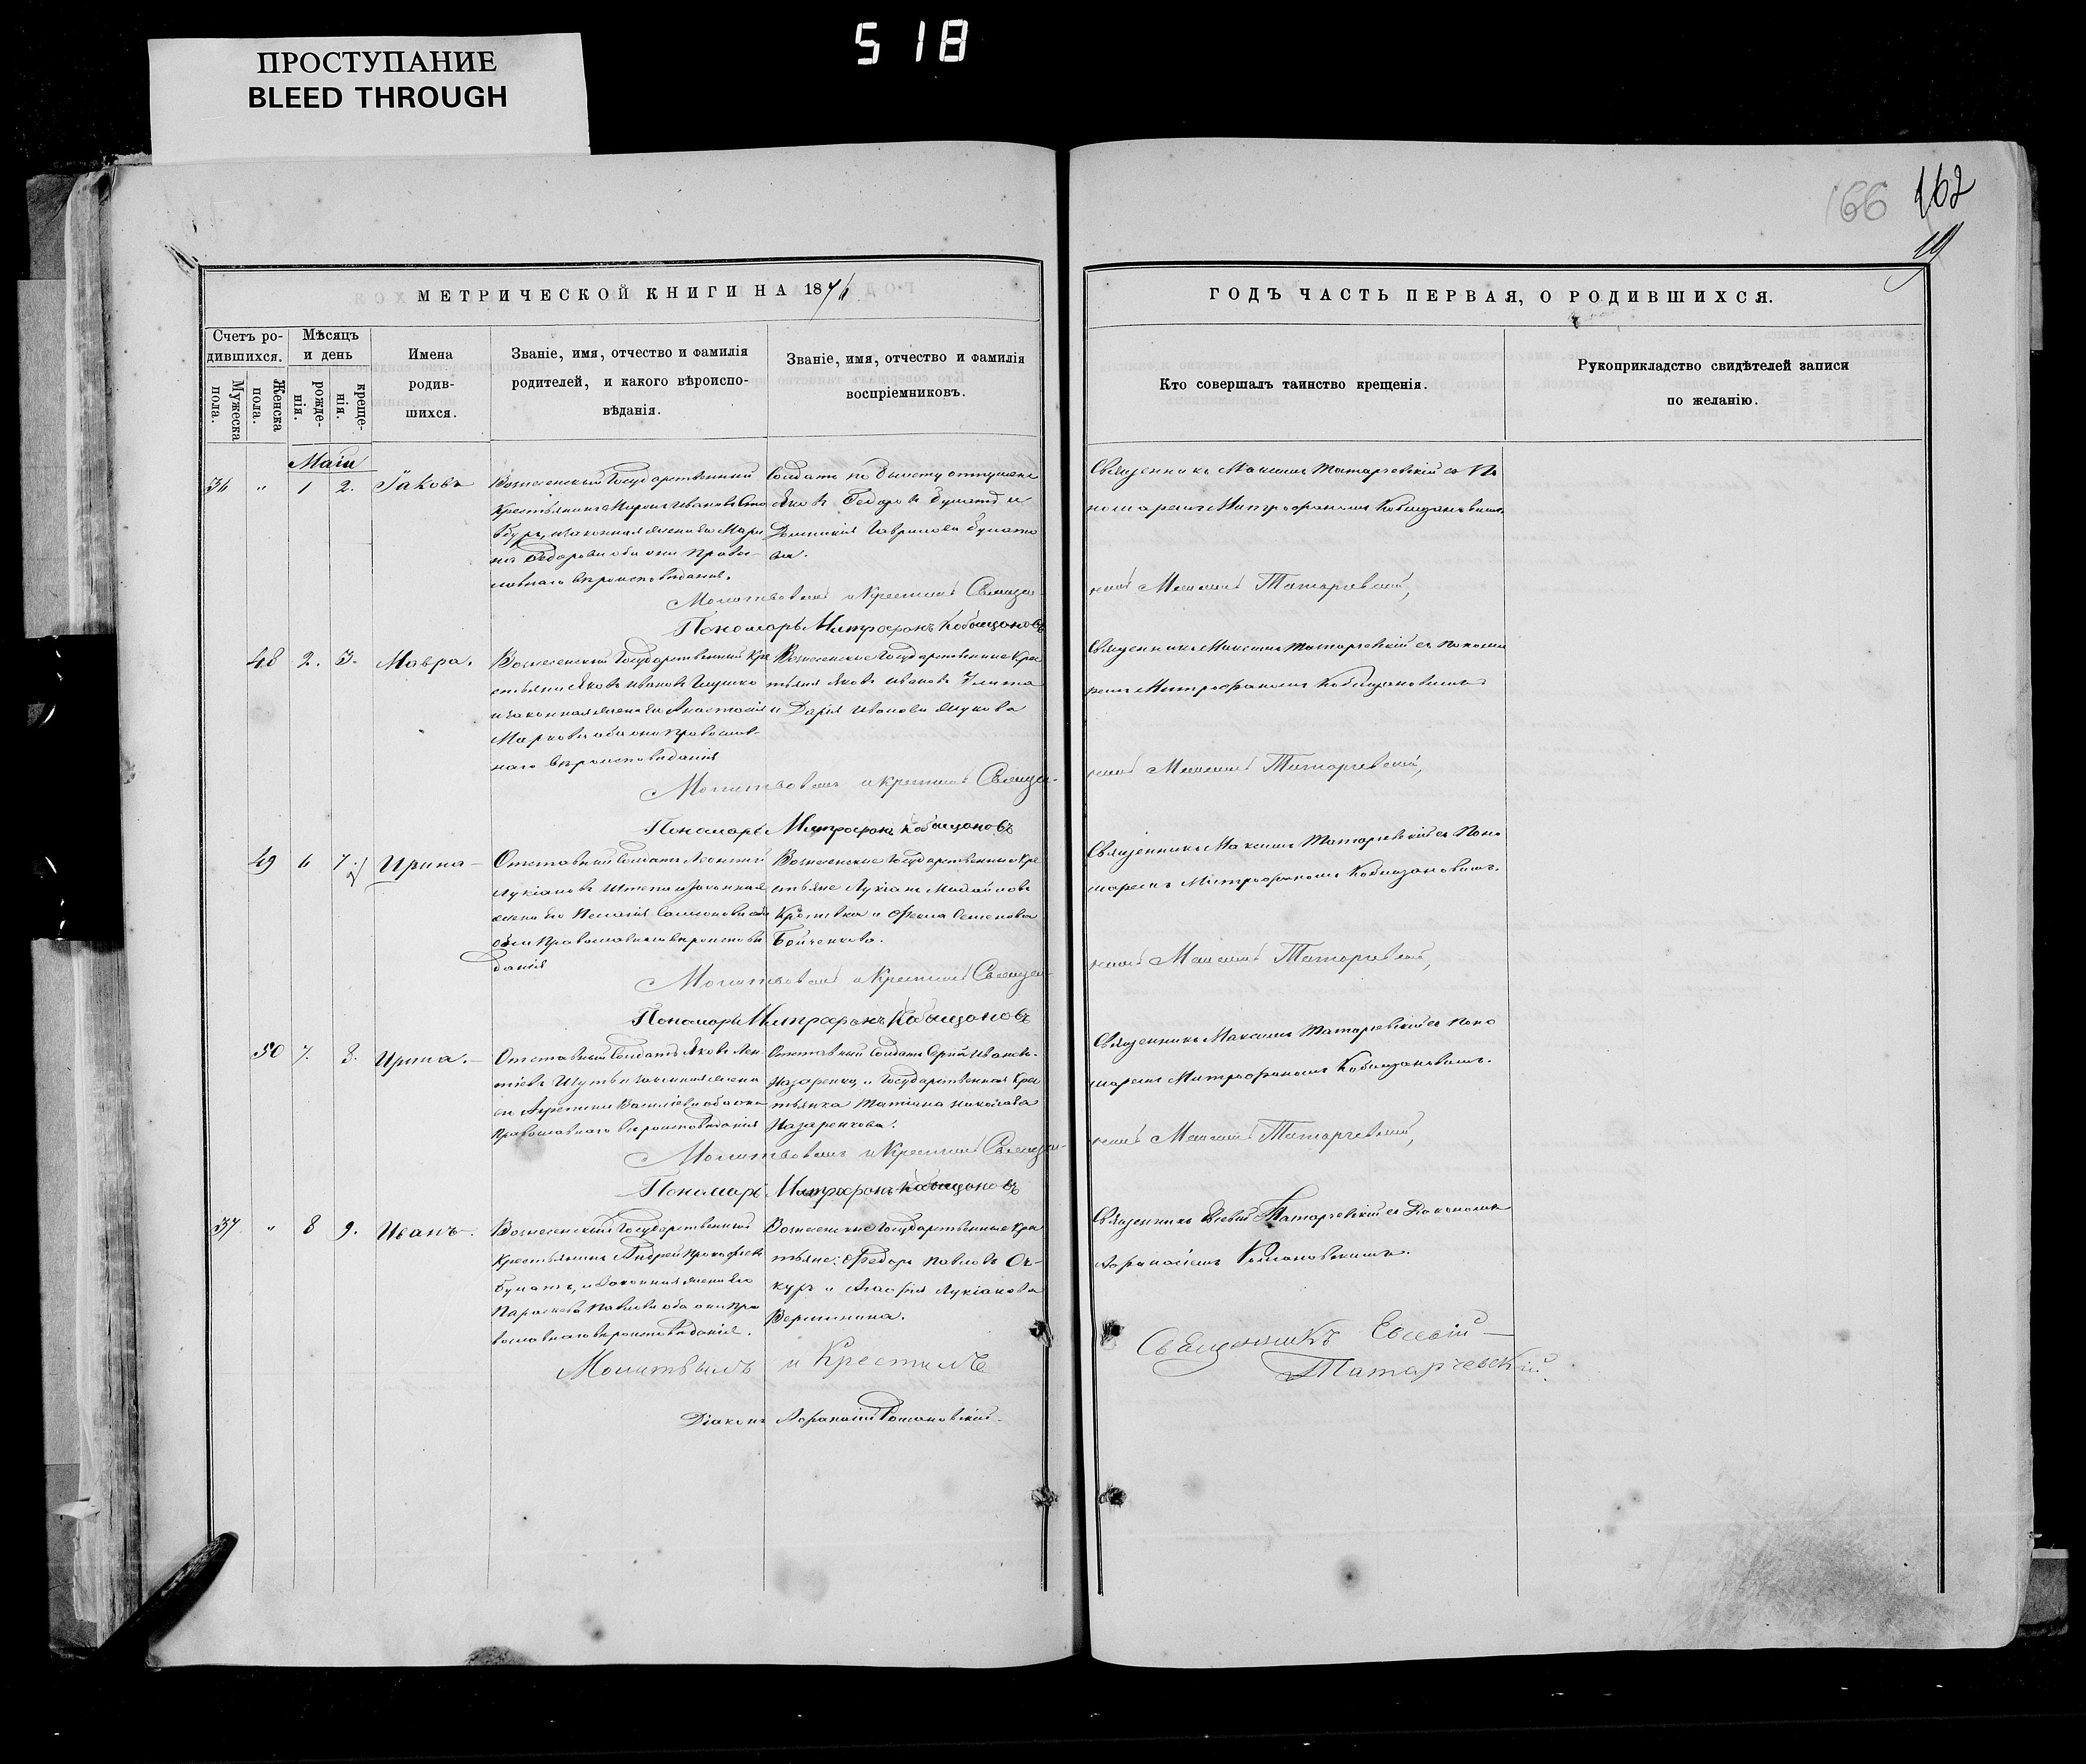 518
ПРОСТУПАНИЕ
BLEED THROUGH
166 162
19
МЕТРИЧЕСКОЙ КНИГИ НА 1876
ГОДЪ ЧАСТЬ ПЕРВАЯ, О РОДИВШИХСЯ.
Счетъ ро-
дившихся.
Мужеска
пола.
Женска
пола.
Мѣсяцъ
и день
рожде-
нія.
креще-
нія.
Имена
родив-
шихся.
Званіе, имя, отчество и фамилія
родителей, и какого вѣроиспо-
вѣданія.
Званіе, имя, отчество и фамилія
воспріемниковъ.
Кто совершалъ таинство крещенія.
Рукоприкладство свидѣтелей записи
по желанію.
Маія
36 " 1 2. Іаковъ
Вознесенскій Государственный
Крестьянинъ Миронъ Ивановъ
законная жена его Мари
на Федорова оба они Право-
славнаго вѣроисповѣданія.
Солдатъ по билету
Яковъ Федоровъ Булатъ и
Гаврилова Булато
ва.
Священникъ Максимъ Татарчевскій съ По
номаремъ Митрофаномъ Кобищановымъ.
Молитвовалъ и Крестилъ Священ-
никъ Максимъ Татарчевскій,
Пономарь Митрофанъ Кобыщановъ
48 2. 3. Мавра.
Вознесенскій Государственный Кре
стьянинъ Яковъ Ивановъ
и законная жена его Анастасія
Маркова оба они Православ-
наго вѣроисповѣданія
Вознесенскіе Государственные Крес
тьяне Яковъ Ивановъ
и Дарія Иванова
Священникъ Максимъ Татарчевскій съ Понома
ремъ Митрофаномъ Кобищановымъ
Молитвовалъ и крестилъ Священ-
никъ Максимъ Татарчевскій,
Пономарь Митрофанъ Кобыщановъ
49 6 7. Ирина
Отставный Солдатъ Леонтій
Лукіановъ и законная
жена его Пелагія
они Православнаго вѣроисповѣ
данія
Вознесенскіе Государственные Кре
стьяне Лукіанъ Михайловъ
и Фекла Семенова
Бойченкова.
Священникъ Максимъ Татарчевскій съ Поно
маремъ Митрофаномъ Кобищановымъ.
Молитвовалъ и Крестилъ Священ-
никъ Максимъ Татарчевскій,
Пономарь Митрофанъ Кобыщановъ
50 7. 8. Ирина.
Отставный Солдатъ Яковъ Леон
тіевъ и законная жена
его Васильева оба они
Православнаго вѣроисповѣданія
Отставный Солдатъ Ивановъ
Назаренко и Государственная Крес
тьянка Татіана Николаева
Назаренкова.
Священникъ Максимъ Татарчевскій съ Поно
маремъ Митрофаномъ Кобищановымъ.
Молитвовалъ и Крестилъ Священ-
никъ Максимъ Татарчевскій,
Пономарь Митрофанъ Кобыщановъ
37 " 8 9. Иванъ.
Вознесенскій Государственный
Крестьянинъ Андрей Прокофіевъ
Булатъ, и законная жена его
Параскева Павлова оба они Пра
вославнаго вѣроисповѣданія.
Вознесенскіе Государственные Крес
тьяне: Федоръ Павловъ
и Лукіанова
Вершинина.
Священникъ Евсевій Татарчевскій съ Діакономъ
Афанасіемъ Романовскимъ.
Молитвилъ и Крестилъ
Священникъ Евсевій
Татарчевскій.
Діаконъ Афанасій Романовскій.